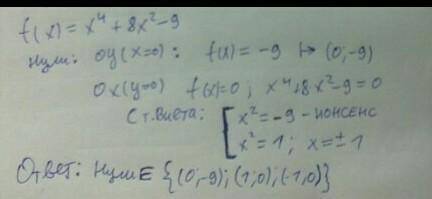 f(x) = x⁴ + 8x² - 9
Нули: oy (x=0): f(x) = -9 ↦ (0;-9)
Ox (y=0) f(x)=0; x⁴+8x²-9=0
С т. Виета: [ x² = -9 - нонсенс
x² = 1; x = ± 1
Ответ: Нули ∈ {(0;-9); (1;0); (-1;0)}